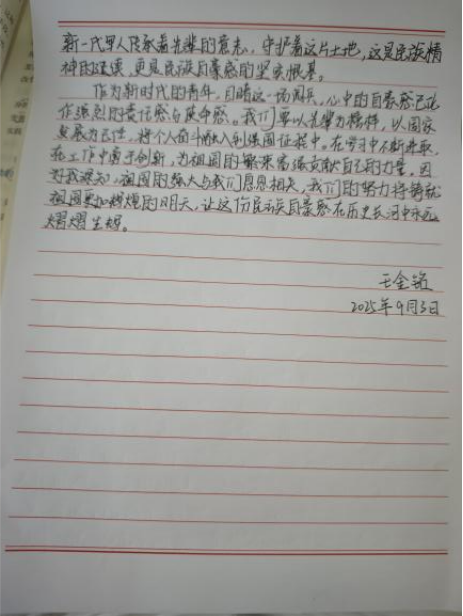 新一代军人传承着先辈的意志，守护着这片土地，这是民族精
神的延续，更是民族自豪感的坚实根基。
作为新时代的青年，目睹这一场阅兵，心中的自豪感已化
作强烈的责任感与使命感。我们要以先辈为榜样，以国家
发展为己任，将个人奋斗融入到强国征程中，在学习中不断进取，
在工作中勇于创新，为祖国的繁荣富强贡献自己的力量，因
为我深知，祖国的强大与我们息息相关，我们的努力将铸就
祖国更加辉煌的明天，让这份民族自豪感在历史长河中永远
熠熠生辉。
王金铭
2025年9月3日